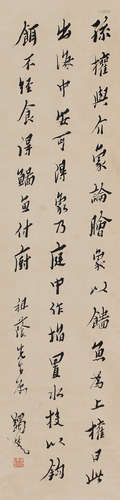 孫權與介象論鱠象以鯔魚為上權曰此
出海中安可得象乃庭中作埳置水投以鈎
餌不經食得鯔魚付廚
祖蔭先生屬